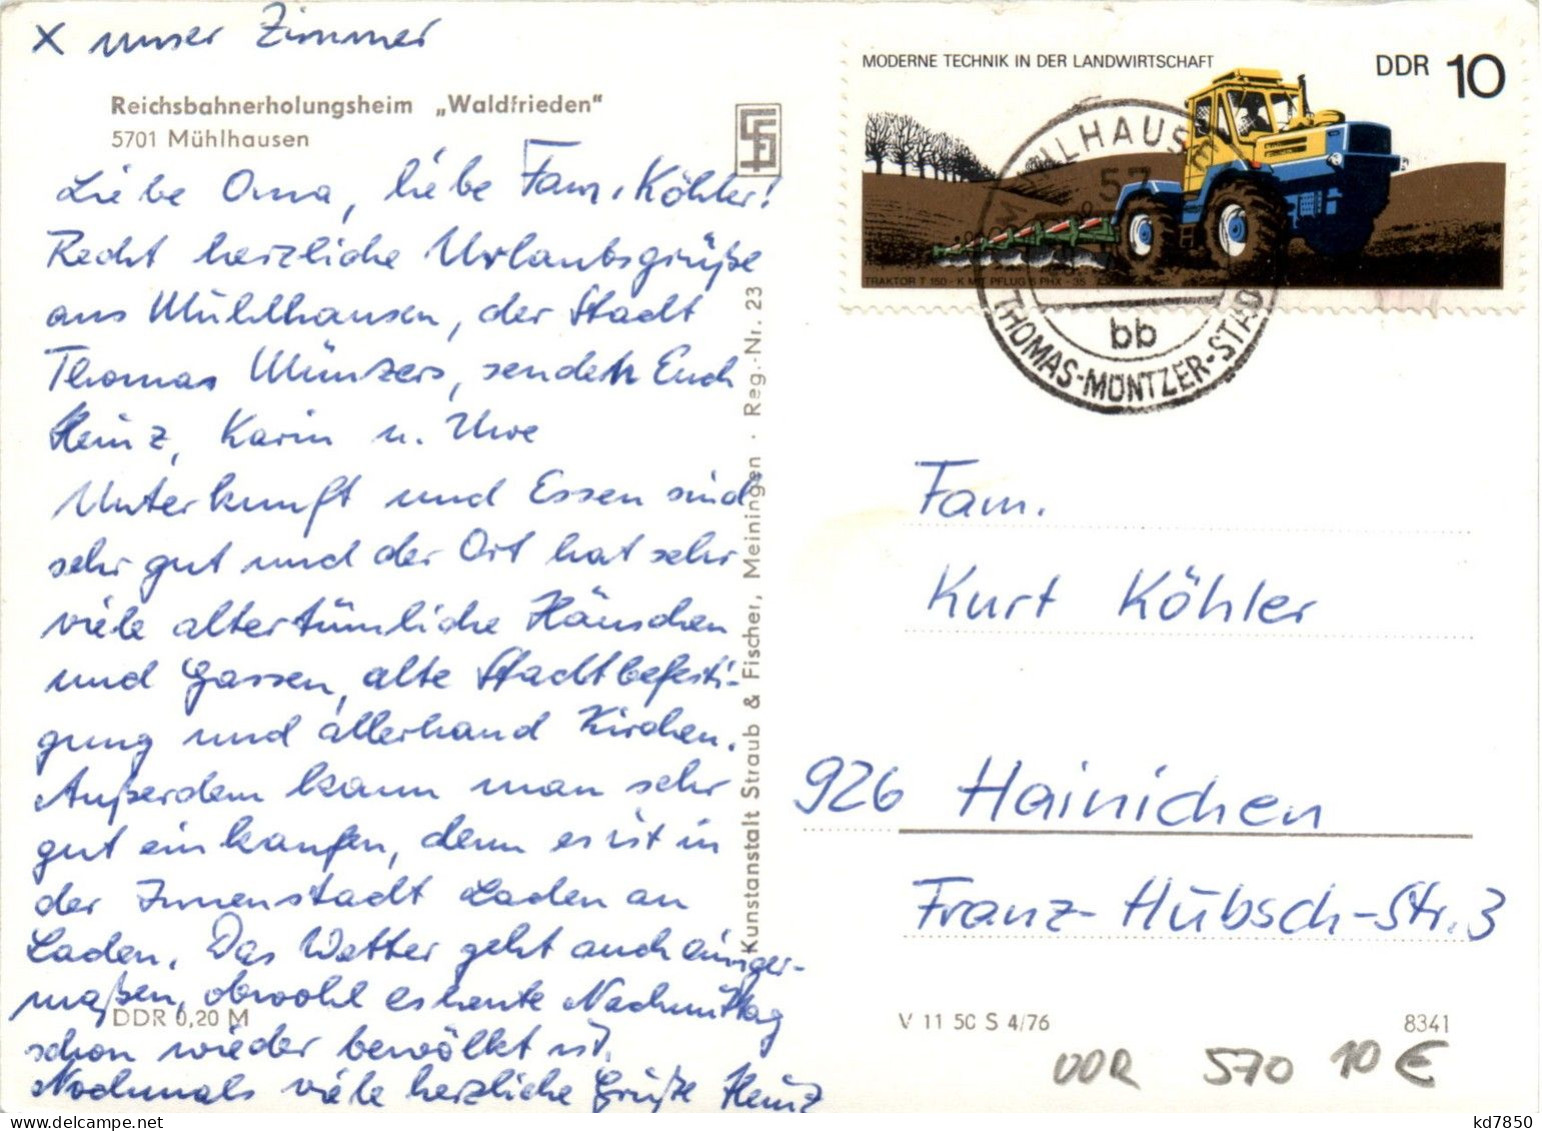 x unser Zimmer
Reichsbahnerholungsheim „Waldfrieden"
5701 Mühlhausen
Liebe Oma, liebe Fam. Köhler!
Recht herzliche Urlaubsgrüße
aus Mühlhausen, der Stadt
Thomas Münzers, senden Euch
Heinz, Karin u. Uwe
Unterkunft und Essen sind
sehr gut und der Ort hat sehr
viele altertümliche Häuschen
und Gassen, alte Stadtbefesti-
gung und allerhand Kirchen.
Außerdem kann man sehr
gut einkaufen, denn es ist in
der Innenstadt Laden an
Laden. Das Wetter geht auch einiger-
maßen, obwohl es heute Nachmittag
schon wieder bewölkt ist.
Nochmals viele herzliche Grüße Heinz
DDR 0,20 M
Kunstanstalt Straub & Fischer, Meiningen · Reg.-Nr. 23
MODERNE TECHNIK IN DER LANDWIRTSCHAFT
DDR 10
TRAKTOR T 150-K MIT PFLUG B PHX-35
57
bb
THOMAS-MÜNTZER-STADT
Fam.
Kurt Köhler
926 Hainichen
Franz-Hübsch-Str. 3
V 11 50 S 4/76
8341
DDR 570 10 €
kd7850